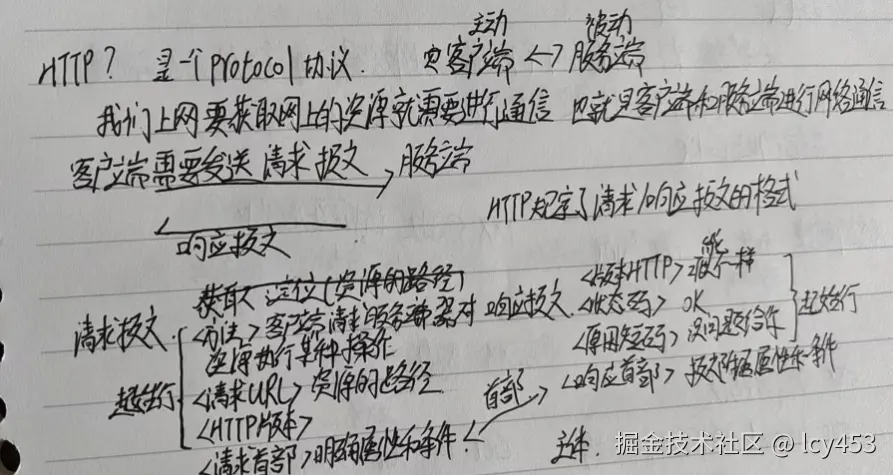 主动 被动
HTTP? 是一个protocol协议. 客户端 <-> 服务端
我们上网要获取网上的资源就需要进行通信 也就是客户端和服务端进行网络通信
客户端需要发送 请求报文 服务端
HTTP规定了请求/响应报文的格式
响应报文
获取、定位(资源的路径)
请求报文. <方法> 客户端请求服务器对
资源执行某种操作
起始行 <请求URL> 资源的路径
<HTTP版本>
<请求首部> 明确属性和条件.
首部
响应报文. <版本HTTP> 能不一样
<状态码> OK
<原因短码>
起始行
<响应首部> 条件
主体.
掘金技术社区 @ lcy453